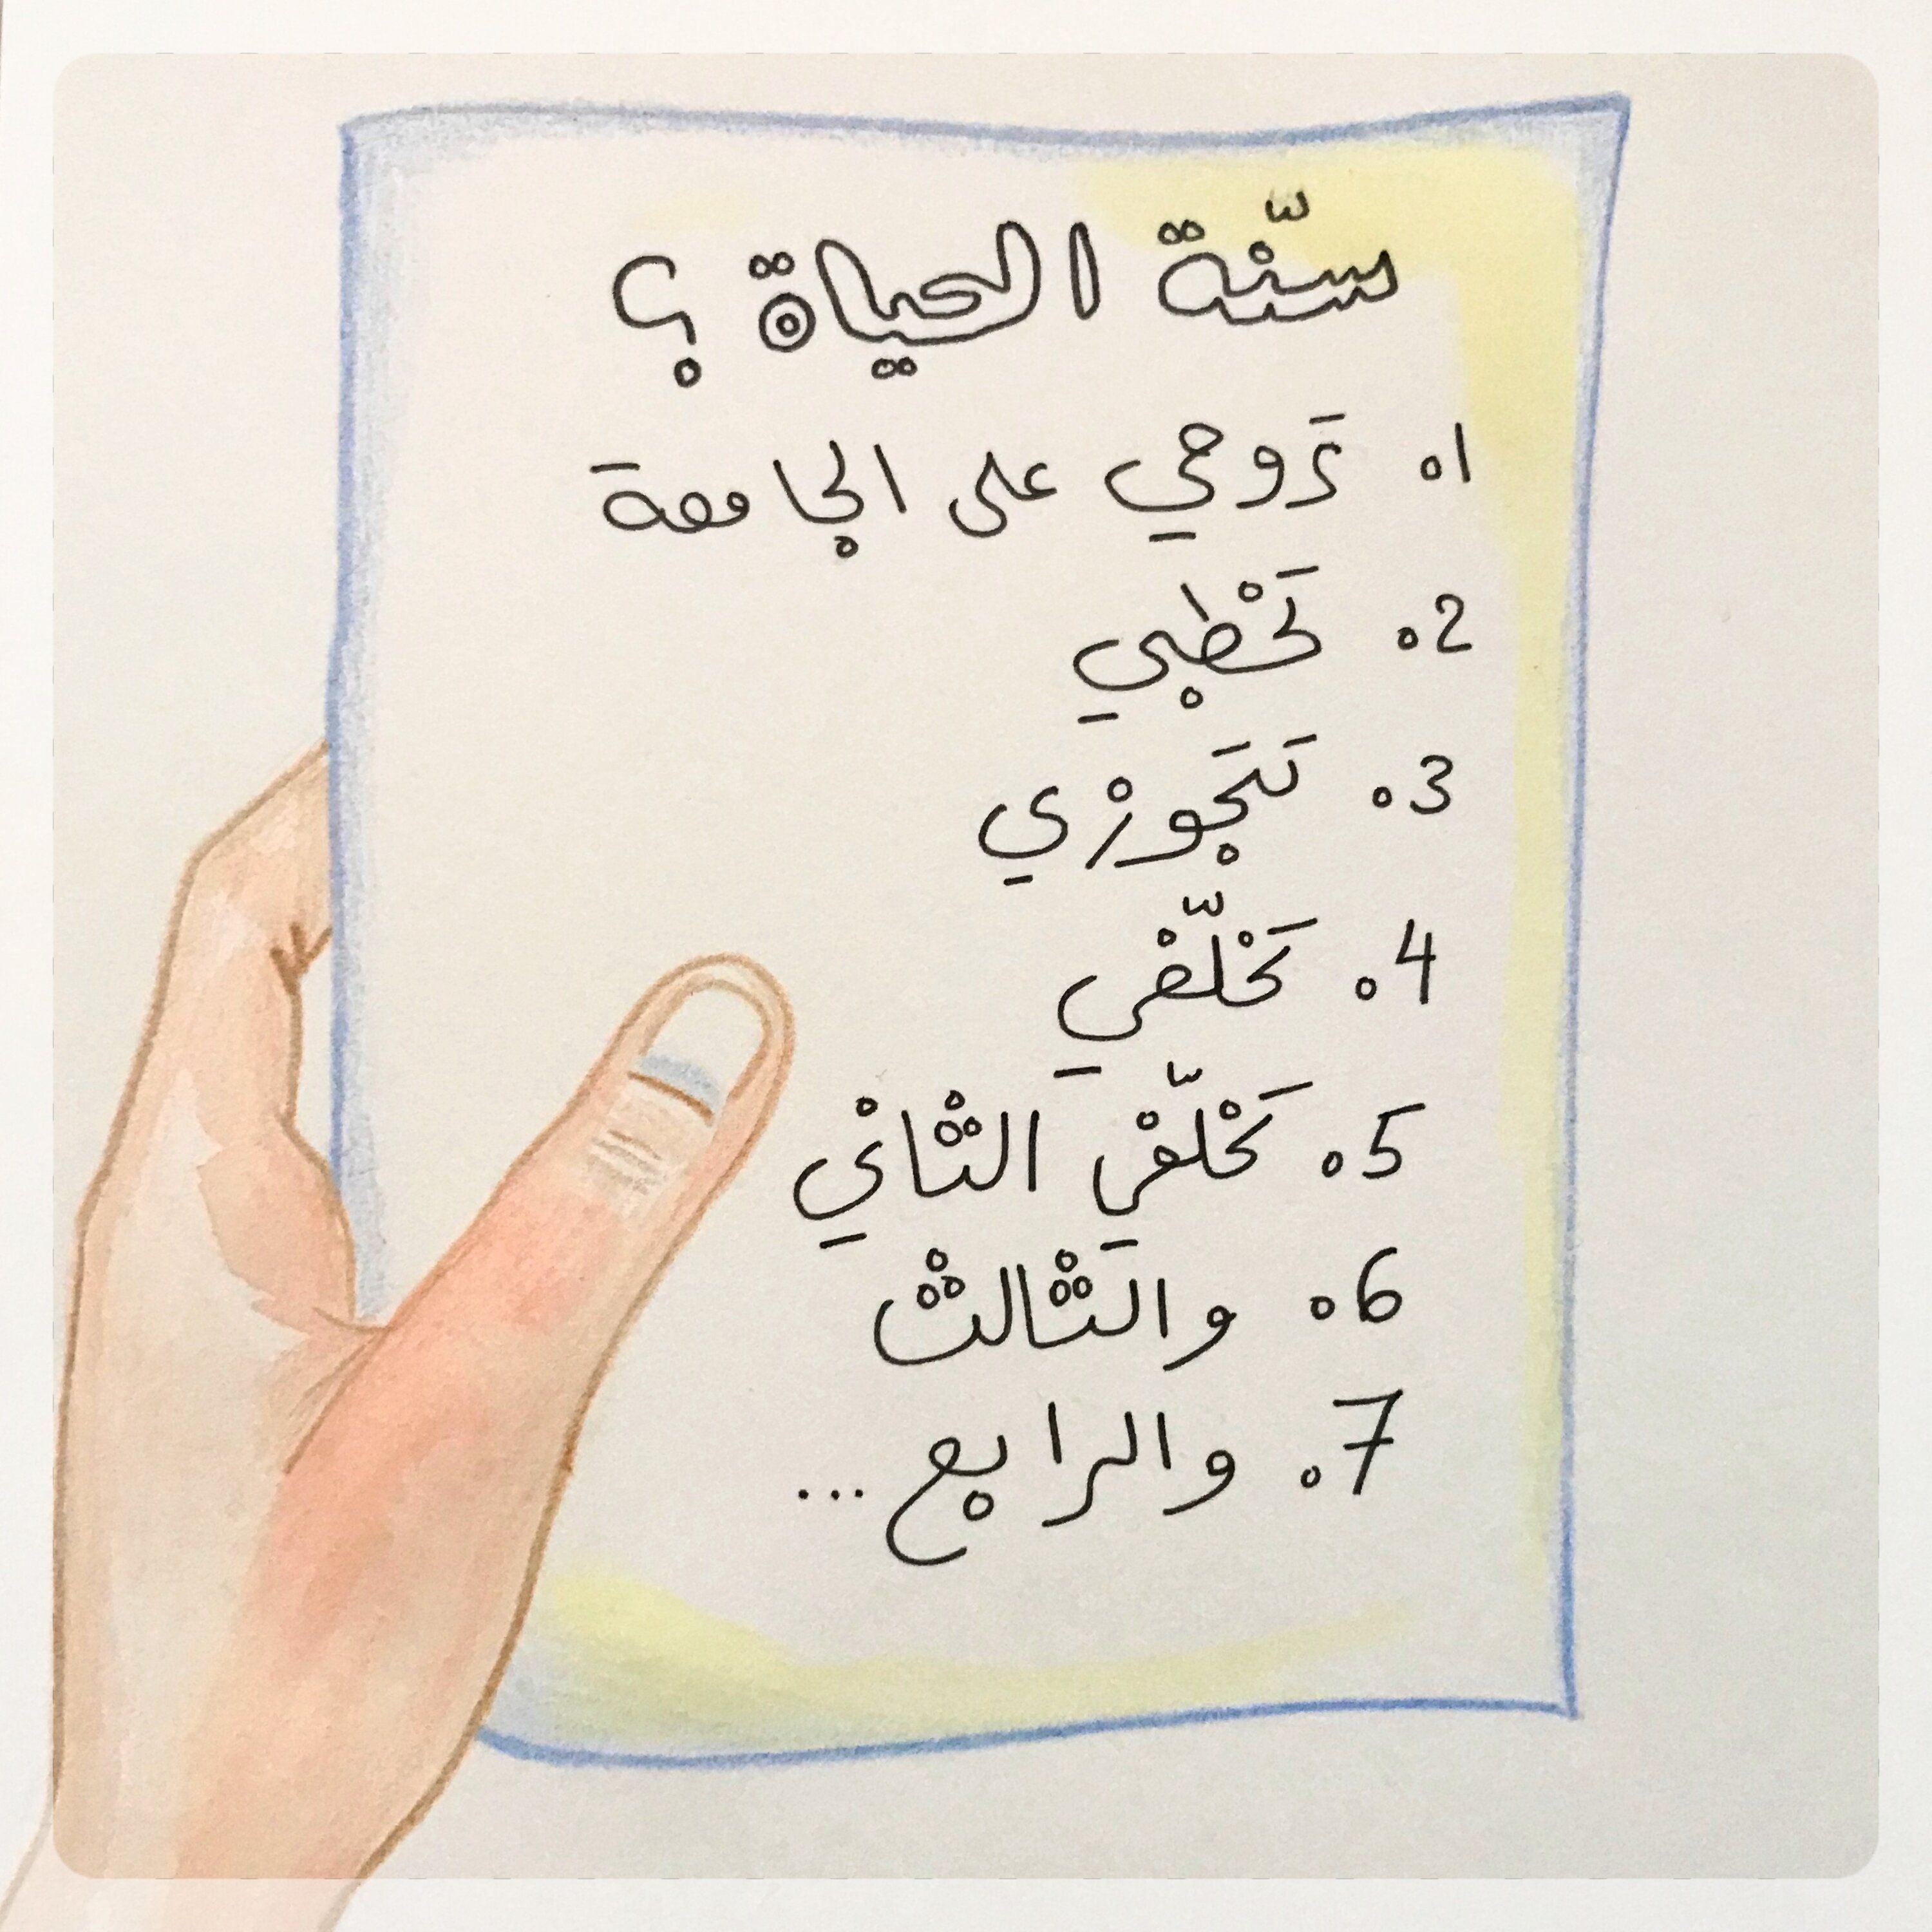 سنّة الحياة ؟
1. تَروحي على الجامعة
2. تَخْطبي
3. تَتَجوزْي
4. تَخْلّفْي
5. تَخْلّفْي الثْاني
6. والثْالثْ
7. والرابع ...